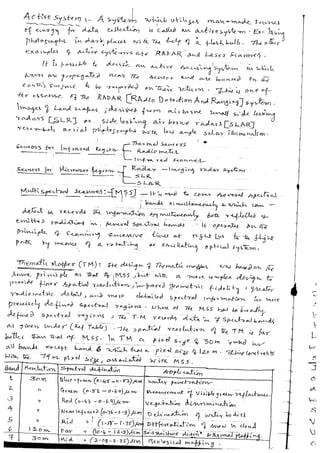 Active System :- A system which utilizes man-made sources
of energy for data collection is called an active system. Ex:- Using
photographs in dark places with the help of a flash bulb. The other
examples of active systems are RADAR and Laser Scanners.
It is possible to devise an active sensing system in which
waves are propagated near the sensor and are bounced on the
earth's surface to be recorded on their return. This is one of
the essence of the RADAR [RAdio Detection And Ranging] system.
Images of land scapes derived from airborne side looking
radars [SLR] or side looking air borne radars [SLAR]
resemble aerial photographs with low angle solar illumination.
Sensors for Infrared Region
Thermal Sensors
Radiometer
Infra red scanner
Sensors for Microwave Region
Radar - imaging radar system
SLR
SLAR
Multispectral Scanners:- [MSS] It is used to cover several spectral
bands simultaneously & which can
detect & records the information simultaneously both reflected &
emitted radiations in several spectral bands. It operates on the
principle of scanning successive lines at right to the flight
path by means of a rotating or oscillating optical system.
Thematic Mapper (TM): The design of Thematic mapper was based on the
same principle as that of MSS, but with a more complex design to
provide finer spatial resolution, improved geometric fidelity, greater
radiometric detail, and more detailed spectral information in more
precisely defined spectral regions. where as the MSS has broadly
defined spectral regions, the T.M records data in 7 spectral bands
as given under (Ref Table). The spatial resolution of the TM is far
better than that of MSS. In TM a pixel size of 30m is used in
all bands except band 6 which has a pixel size of 120m. This contrasts
with the 79m pixel size associated with MSS.
Band Resolution Spectral definition Application
1 30m Blue-green (0.45-0.52) µm water penetration
2 " Green (0.52-0.60) µm Measurement of visible green reflectance
3 " Red (0.63-0.69) µm Vegetation discrimination
4 " Near infrared (0.76-0.9) µm Delineation of water bodies
5 " Mid " (1.55-1.75) µm Differentiation of snow in cloud
6 120m Far " (10.4-12.5) µm Thermal Mapping
7 30m Mid " (2.08-2.35) µm Geological mapping